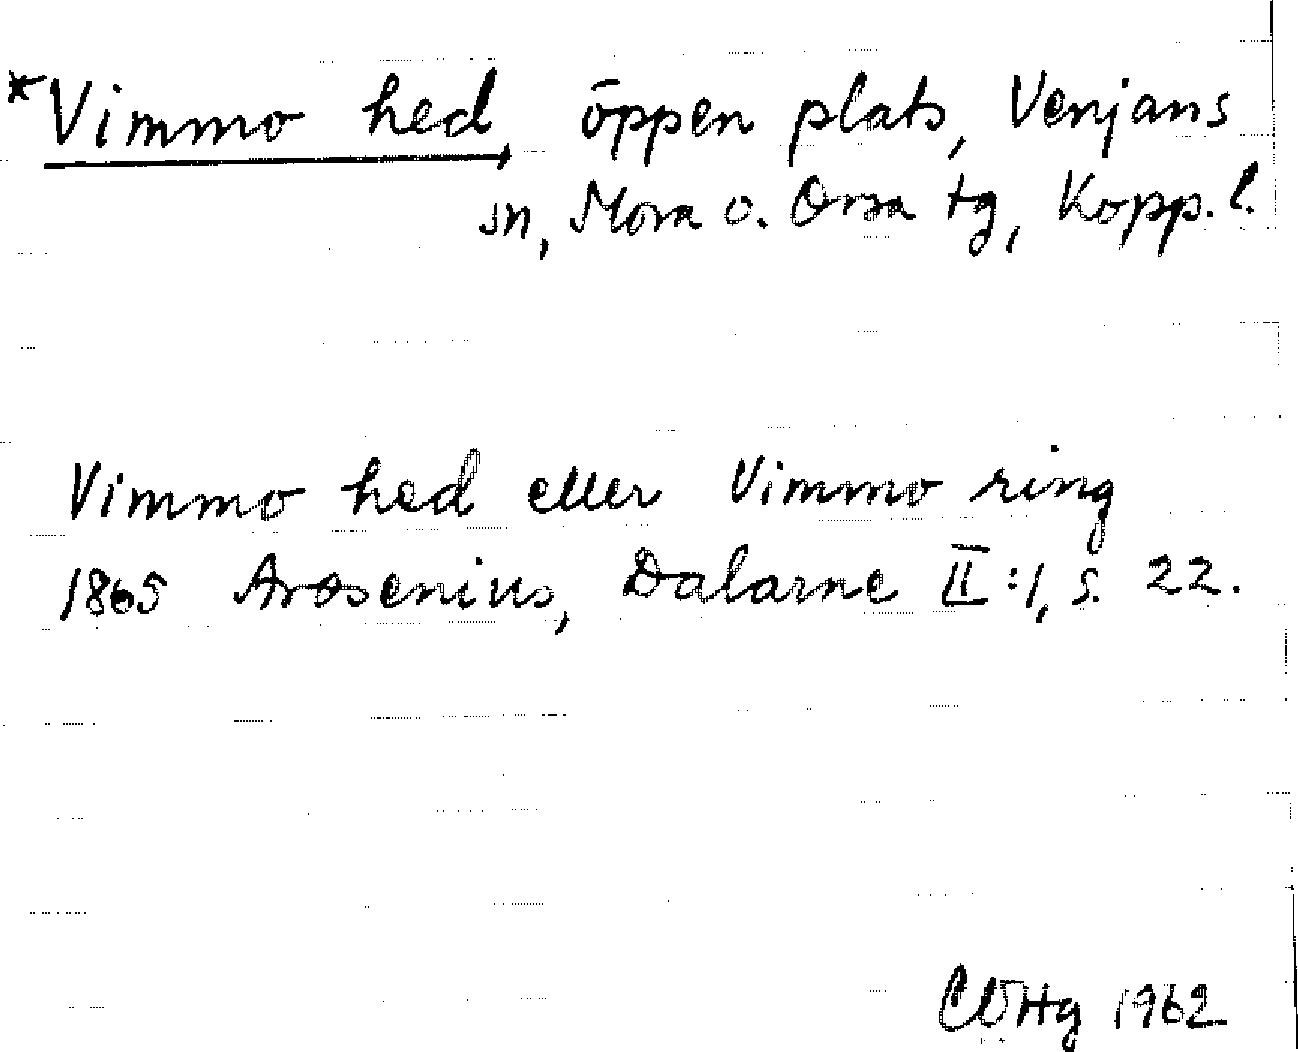 *Vimmo hed, öppen plats, Venjans
sn, Mora o. Orsa tg, Kopp. l.
Vimmo hed eller Vimmo ring
1865 Arosenius, Dalarne II:1, s. 22.
1962